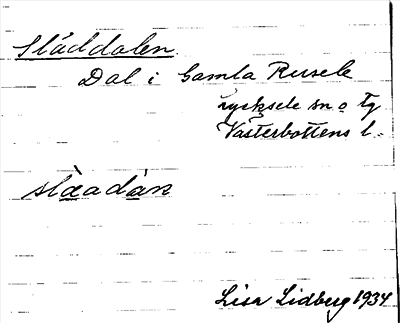 Släddalen
Dal i Gamla Rusele
Lycksele sn o tg
Västerbottens l.
slàadàn
Lisa Lidberg 1934